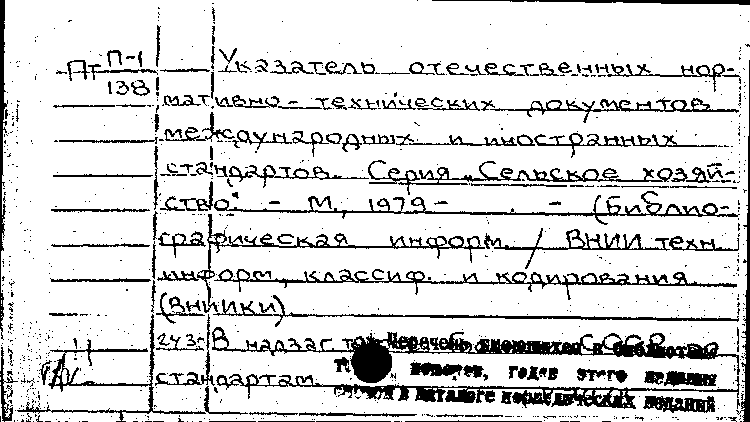 Пт П-1 Указатель отечественных нор-
138
мативно-технических документов
международных и иностранных
стандартов. Серия „Сельское хозяй-
ство". - М., 1979 - . - (Библио-
графическая информ. / ВНИИ техн.
информ., классиф. и кодирования
(ВНИИКИ)
В надзаг. Перечень имеющихся в библиотеке
стандартам. номеров, годов этого издания
в каталоге периодических изданий